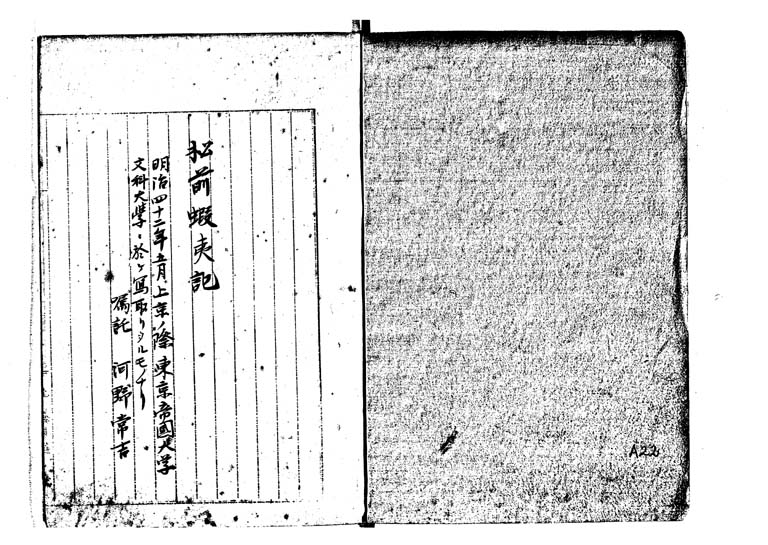 松前蝦夷記
明治四十二年五月上京ノ際東京帝國大学
文科大學ニ於テ写取リシルモノナリ
嘱託 河野常吉
A22